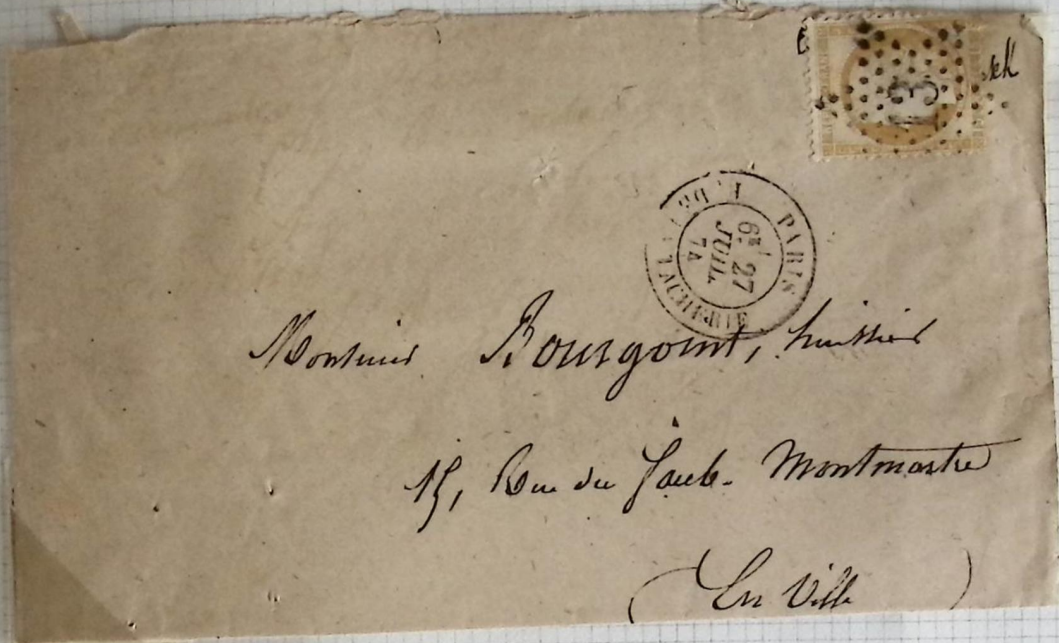 13
PARIS
6E 27
JUIL
74
R. DE LA TACHERIE
Monsieur Bourgoint, huissier
15, Rue du Faub. Montmartre
(En Ville)